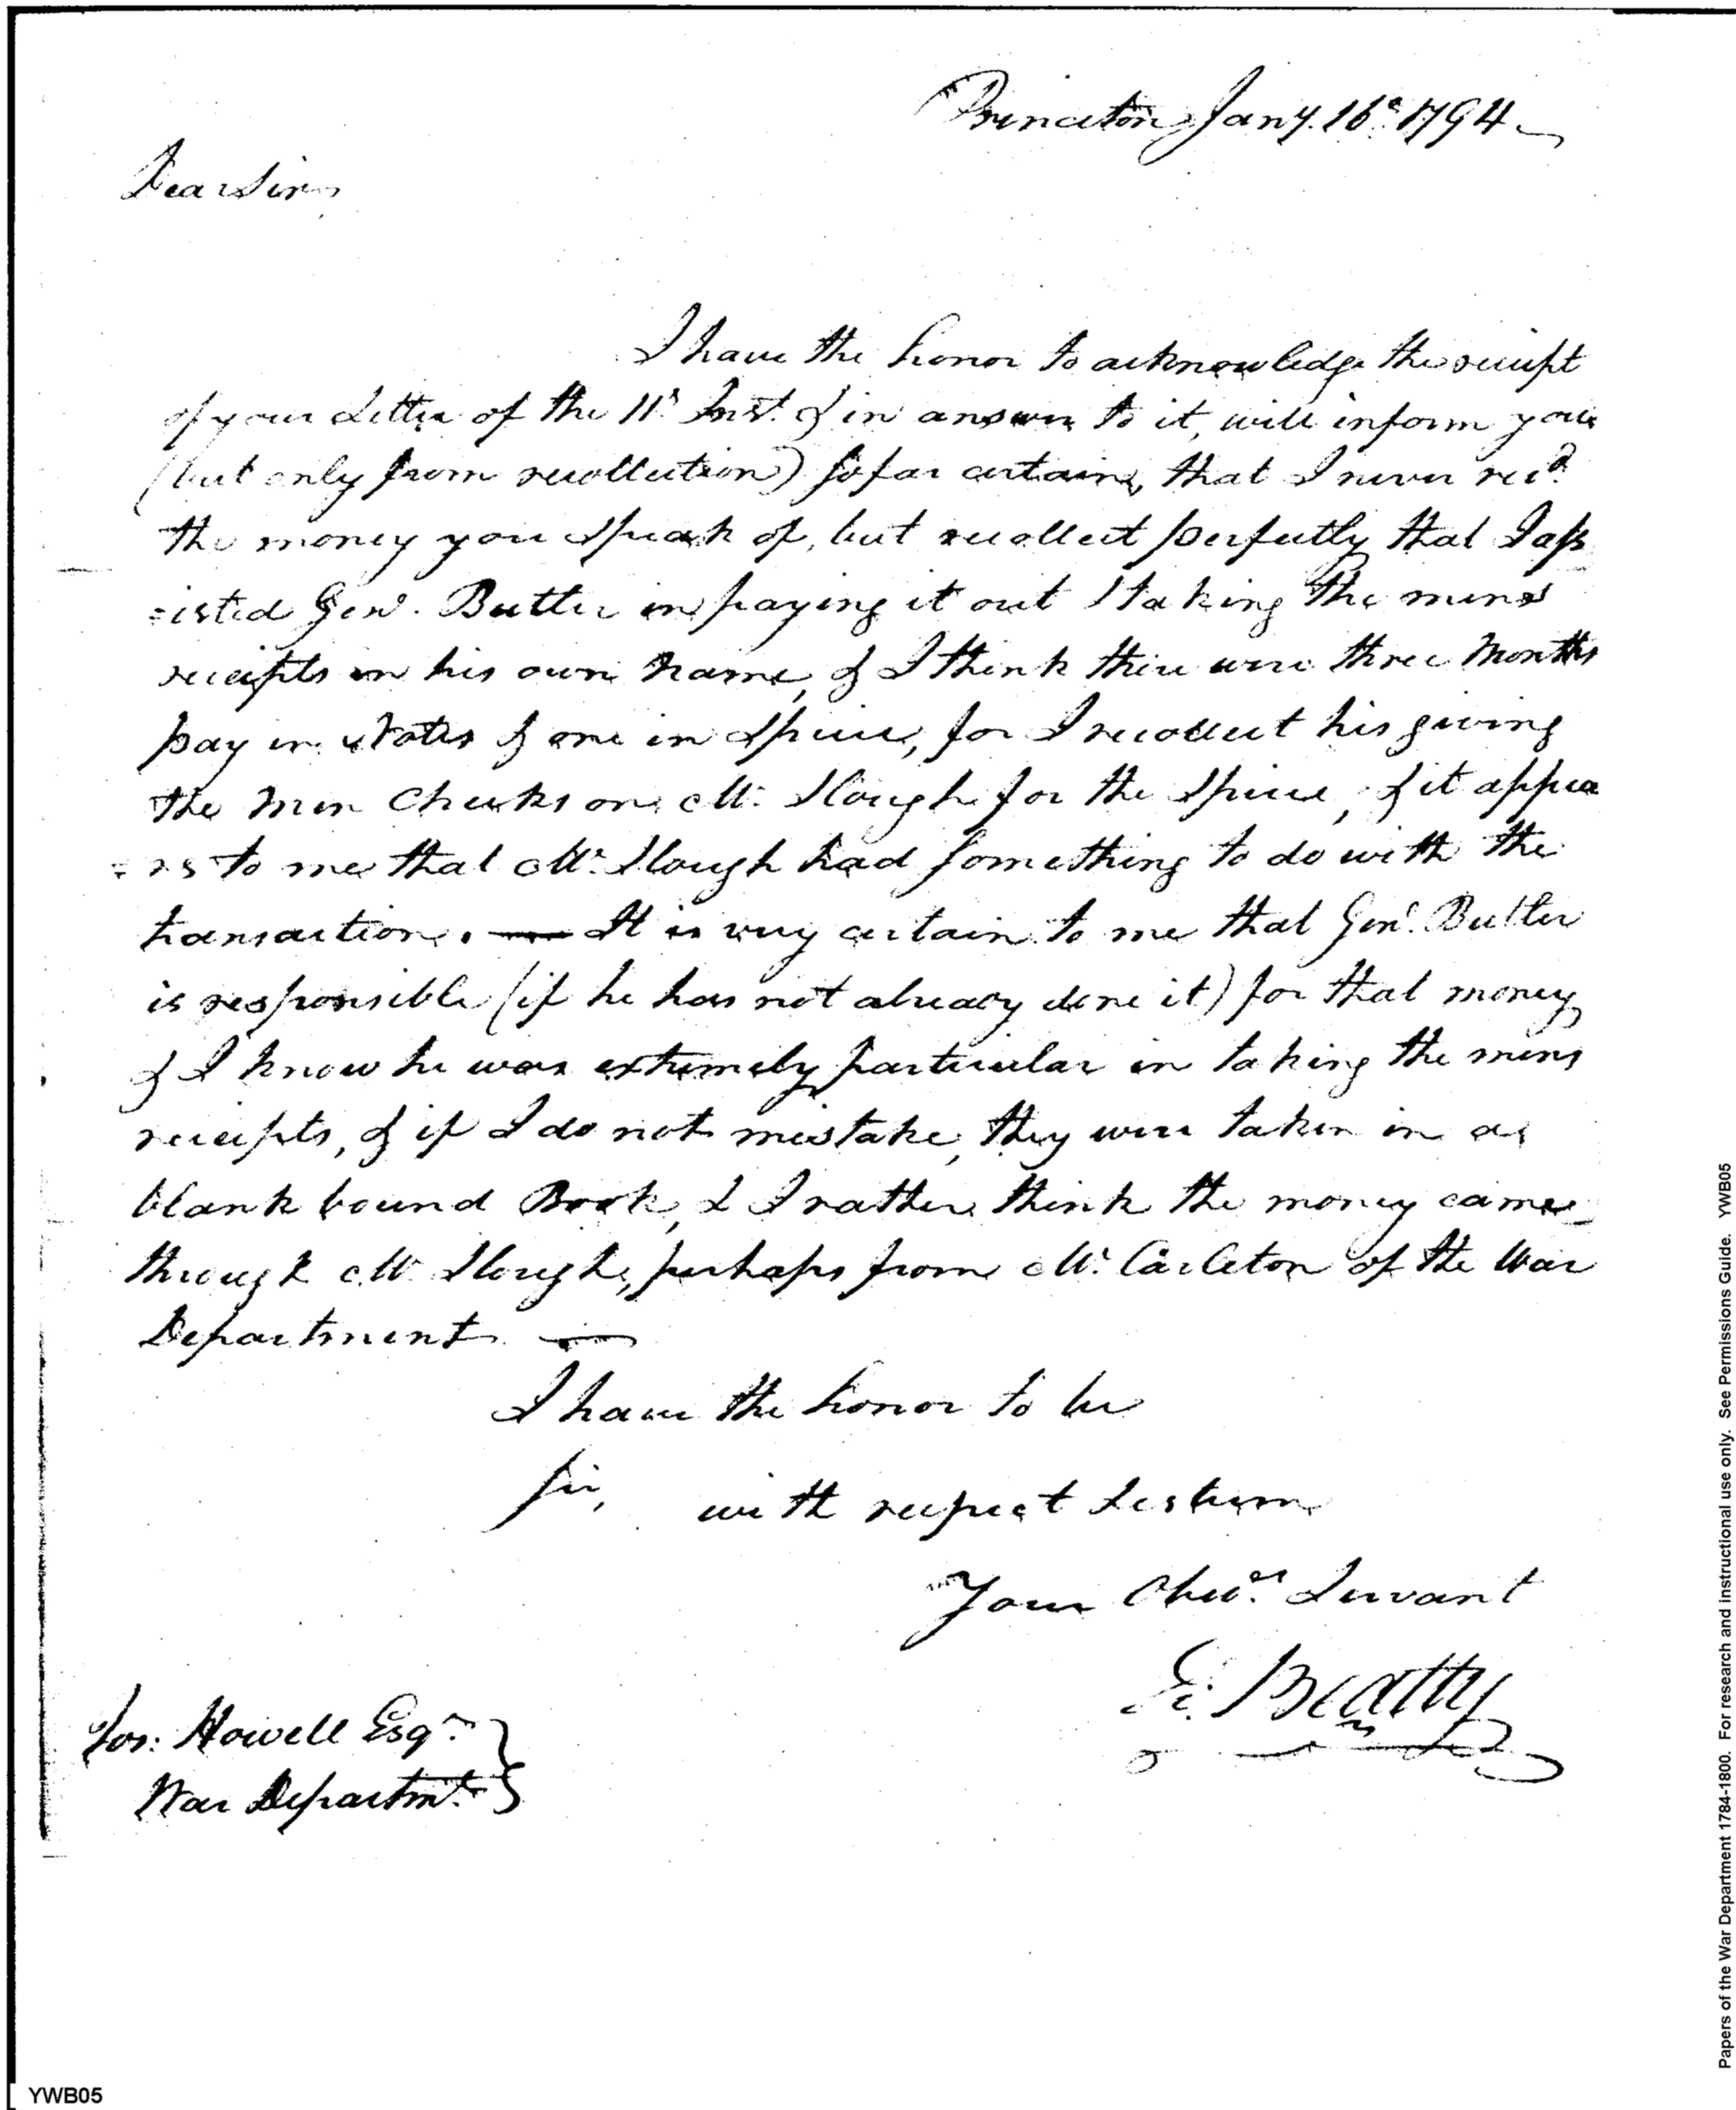 Princeton Jany. 16th 1794
Dear Sir
I have the honor to acknowledge the receipt
of your Letter of the 11th Inst. & in answer to it, will inform you
(but only from recollection) so far certain, that I never recd.
the money you speak of, but recollect perfectly that I ass
=isted Genl. Butler in paying it out & taking the mens
receipts in his own name, & I think there were three Months
pay in Notes & one in Specie, for I recollect his giving
the Men Checks on Mr. Slough for the Specie, & it appea
=rs to me that Mr. Slough had something to do with the
transaction. — It is very certain to me that Genl. Butler
is responsible (if he has not already done it) for that money
& I know he was extremely particular in taking the mens
receipts, & if I do not mistake, they were taken in a
blank bound Book, & I rather think the money came
through Mr. Slough, perhaps from Mr. Carleton of the War
Department —
I have the honor to be
Sir, with respect & esteem
Your Obedt. Servant
E. Beatty
Jos: Howell Esqr.
War Departmt.
YWB05
Papers of the War Department 1784-1800. For research and instructional use only. See Permissions Guide. YWB05